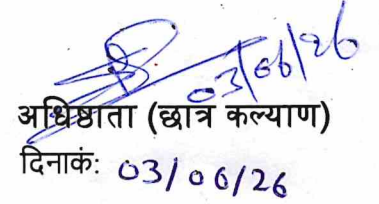 03/06/26
अधिष्ठाता (छात्र कल्याण)
दिनाकं: 03/06/26